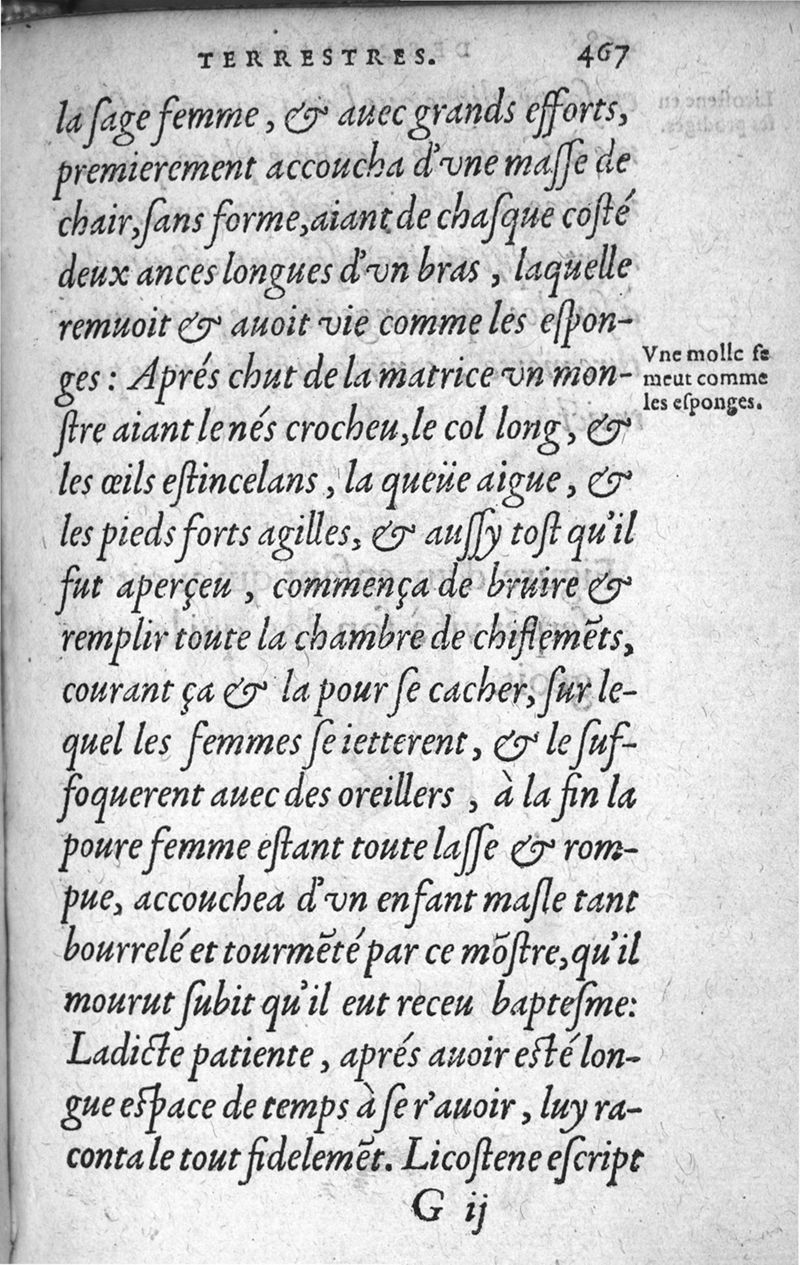 TERRESTRES. 467
la ſage femme, & auec grands efforts,
premierement accoucha d'vne maſſe de
chair, ſans forme, aiant de chaſque coſté
deux ances longues d'vn bras, laquelle
remuoit & auoit vie comme les eſpon-
ges: Aprés chut de la matrice vn mon-
ſtre aiant le nés crocheu, le col long, &
les œils eſtincelans, la queüe aigue, &
les pieds forts agilles, & auſſy toſt qu'il
fut aperçeu, commença de bruire &
remplir toute la chambre de chiflemẽts,
courant ça & la pour ſe cacher, ſur le-
quel les femmes ſe ietterent, & le ſuf-
foquerent auec des oreillers, à la fin la
poure femme eſtant toute laſſe & rom-
pue, accouchea d'vn enfant maſle tant
bourrelé et tourmẽté par ce mõſtre, qu'il
mourut ſubit qu'il eut receu bapteſme:
Ladicte patiente, aprés auoir eſté lon-
gue eſpace de temps à ſe r'auoir, luy ra-
conta le tout fidelemẽt. Licoſtene eſcript
G ij
Vne molle ſe
meut comme
les eſponges.